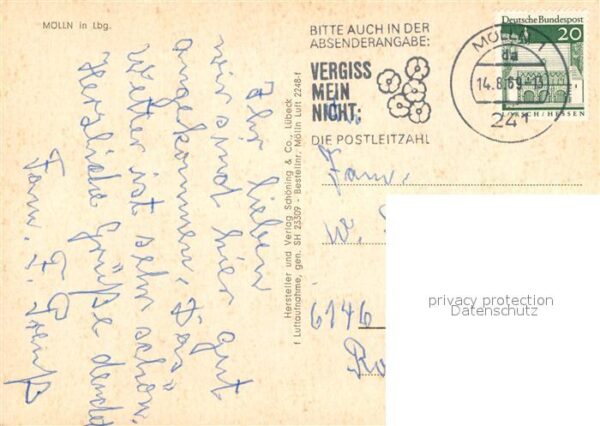 MÖLLN in Lbg.
Ihr lieben
wir sind hier gut
angekommen, das
Wetter ist sehr schön.
Herzliche Grüße sendet
Fam. F.
Hersteller und Verlag Schöning & Co., Lübeck
f Luftaufnahme, gen. SH 23309 - Bestellnr. Mölln Luft 2248-f
BITTE AUCH IN DER
ABSENDERANGABE:
VERGISS
MEIN
NICHT:
DIE POSTLEITZAHL
MÖLLN 1
14.8.69
241
Deutsche Bundespost
20
LORSCH/HESSEN
Fam.
W.
6146
privacy protection
Datenschutz